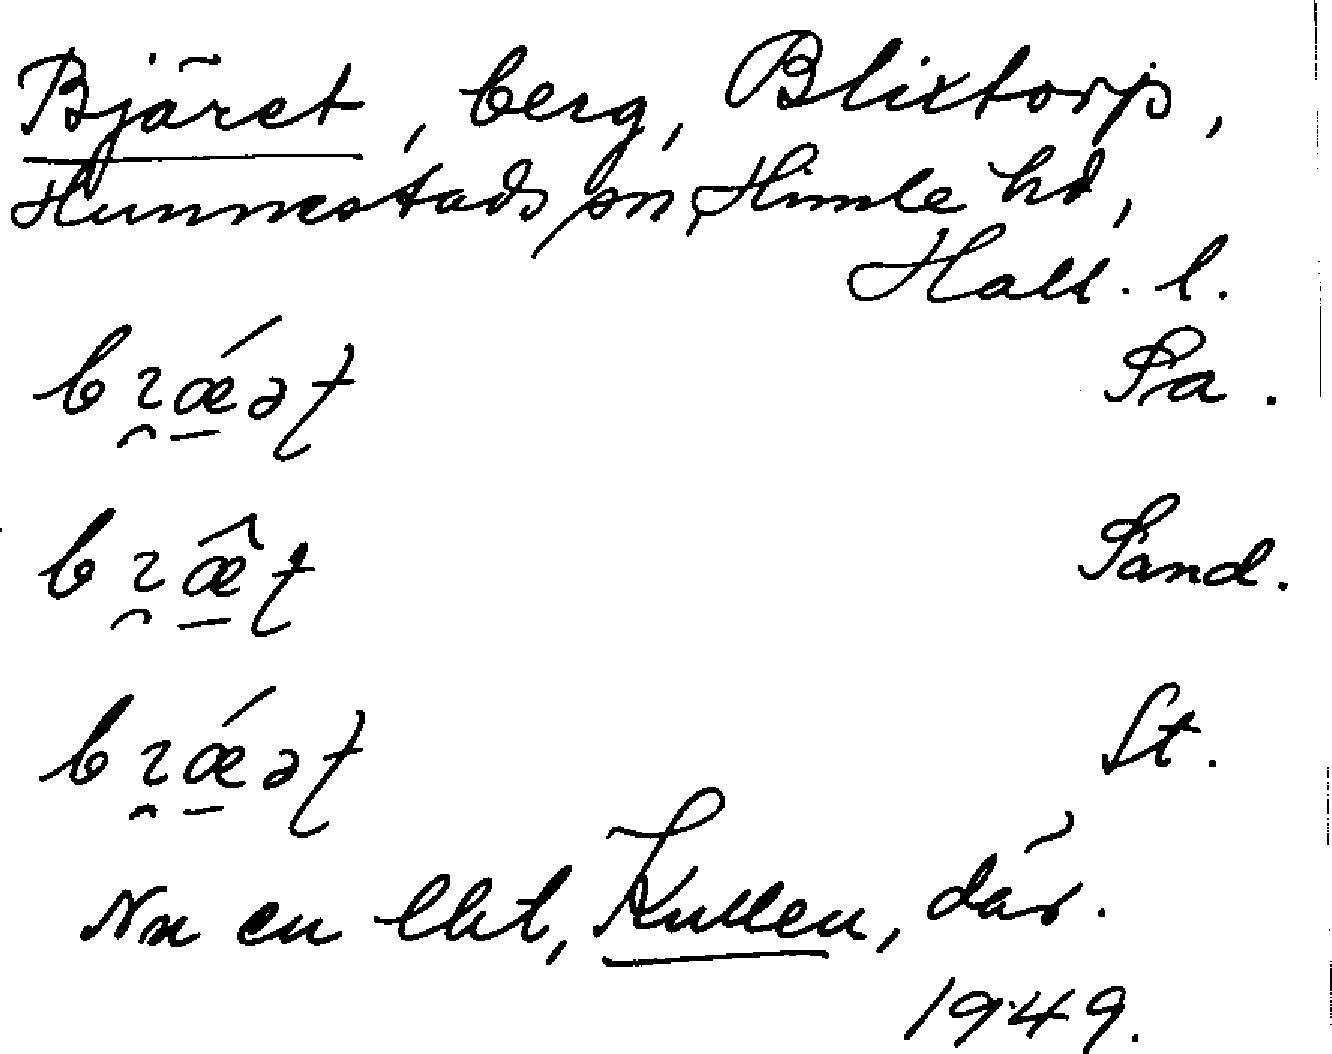 Bjäret, berg, Blixtorp,
Hunnestads sn, Himle hd,
Hall. l.
bɿǽəʈ Sa.
bɿæ̂ʈ Sand.
bɿǽəʈ St.
Nu en lht, Kullen, där.
1949.